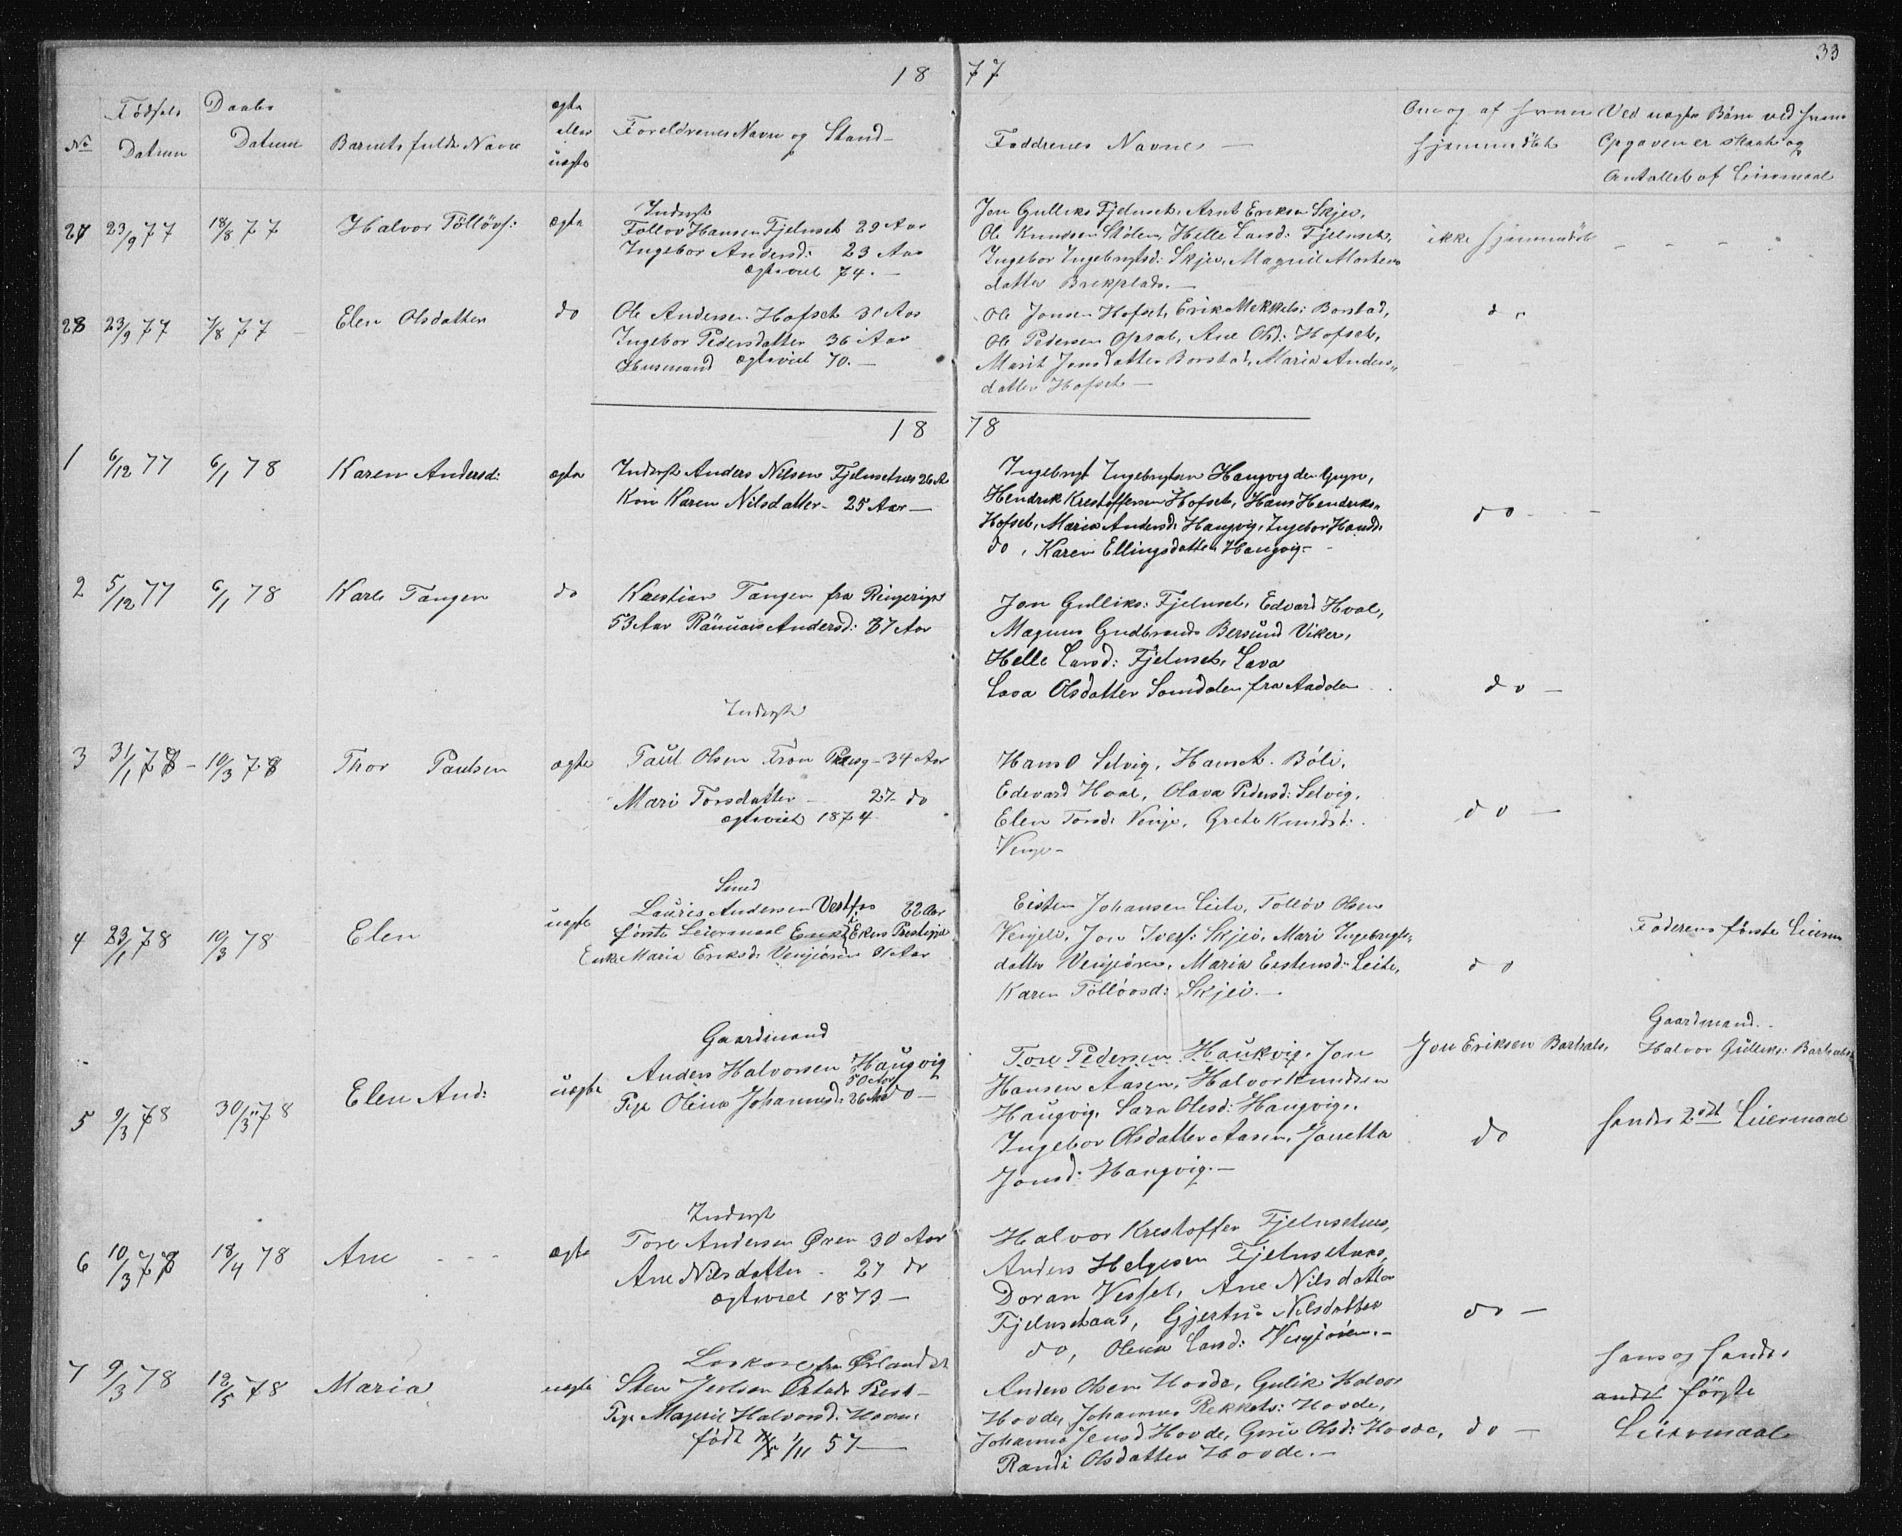 18 77
33
No
Fødsels Datum
Daabs Datum
Barnets fulde Navn
ægte eller uægte
Foreldrenes Navn og Stand
Faddrenes Navne
Om og af hvem hjemmedøbt
Ved uægte Børn ved hvem
Opgaven er skeet og
Antallet af Leiermaal
27 23/9 77 18/8 77 Halvor Tölløvs: ægte
Inderst
Følløv Hansen Fjelnset 29 Aar
Ingebor Andersd: 23 Aar
ægteviet 74. —
Jon Gulliks Fjelnset, Arnt Eriksen Skjei,
Ole Knudsen Stølen, Helle Larsd: Fjelnset,
Ingebor Ingebrigtsd: Skjei, Magnil Mortens
datter Brekplads. —
ikke hjemmedöbt
28 23/9 77 7/8 77 Elen Olsdatter do
Ole Andersen Hofset 31 Aar
Ingebor Pedersdatter 36 Aar
Husmand ægteviet 70. —
Ole Jonsen Hofset, Erik Mekkels: Borstad,
Ole Pedersen Opsal, Ane Olsd: Hofset,
Marit Jonsdatter Borstad, Maria Anders„
datter Hofset —
do
18 78
1 6/12 77 6/1 78 Karen Andersd: ægte
Inderst Anders Nilsen Fjelnsetnes 26 Aar
Kon Karen Nilsdatter - 25 Aar —
Ingebrigt Ingebrigtsen Haugvig den yngre,
Hendrik Krestoffersen Hofset, Hans Hendriks„
Hofset, Maria Andersd: Haugvig, Ingebor Hansd:
do, Karen Ellingsdatter Haugvig. -
do -
2 5/12 77 6/1 78 Karl Tangen do
Krestian Tangen fra Ringerige
53 Aar Rännaug Andersd: 37 Aar
Jon Gulliks: Fjelnset, Edvard Hoel,
Magnus Gudbrands Bersund Viker,
Helle Larsd: Fjelnset, Lava
Lava Olsdatter Somdalen fra Aadalen
do —
3 31/1 78 - 10/3 78 Thor Paulsen ægte
Inderst
Paul Olsen Fron 34 Aar
Mari Torsdatter — 27 do
ægteviet 1874
Hans O Selvig, Hans A. Böli,
Edevard Hoel, Olava Pedersd: Selvig,
Elen Torsd: Venje, Grete Knudsd:
Venje -
do —
4 23/1 78 10/3 78 Elen uægte
Smed
Lauris Andersen Vestfos 22 Aar
første Leiermaal Ekers Prestegjæld
Enke Maria Eriksd: Venjeören 31 Aar
Eisten Johansen Leite, Tolløv Olsen
Venjeli, Jon Ivers: Skjei, Mari Ingebregts„
datter Venjeören, Maria Eistensd: Leite,
Karen Tölløvsd: Skjei. —
do
Faderens første Leierm
5 9/3 78 30/3 78 Elen And: uægte
Gaardmand
Anders Halvorsen Haugvig
50 Aar
Pige Olina Johannesd: 26 Aar do —
Tore Pedersen Haukvig, Jon
Hansen Aasen, Halvor Knudsen
Haugvig, Sara Olesd: Haugvig,
Ingebor Olsdatter Aasen, Jonetta
Jonsd: Haugvig. —
Jon Eriksen Barhals,
do
Gaardmand
Halvor Gulliks: Barhals
hendes 2det Leiermaal
6 10/3 78 18/4 78 Ane ægte
Inderst
Tore Andersen Øren 30 Aar
Ane Nilsdatter - 27 do
ægteviet 1873 —
Halvor Krestoffer Fjelnsetnes,
Anders Helgesen Fjelnsetnes,
Doran Vessel, Ane Nilsdatter
Fjelnsetaas, Gjertru Nilsdatter
do, Olena Larsd: Venjeören. -
do —
7 9/3 78 12/5 78 Maria uægte
Loskarl fra Ørlandet
Sten Jenssen Ørlands Prest-
Pige Magnil Halvorsd: Hovde
født 1/11 57 —
Anders Olsen Hovde, Gulik Halvor
Hovde, Johannes Rekkels: Hovde,
Johanna Jensd Hovde, Guru Olsd: Hovde,
Randi Olsdatter Hovde. —
do —
hans og hendes
andet første
Leiermaal